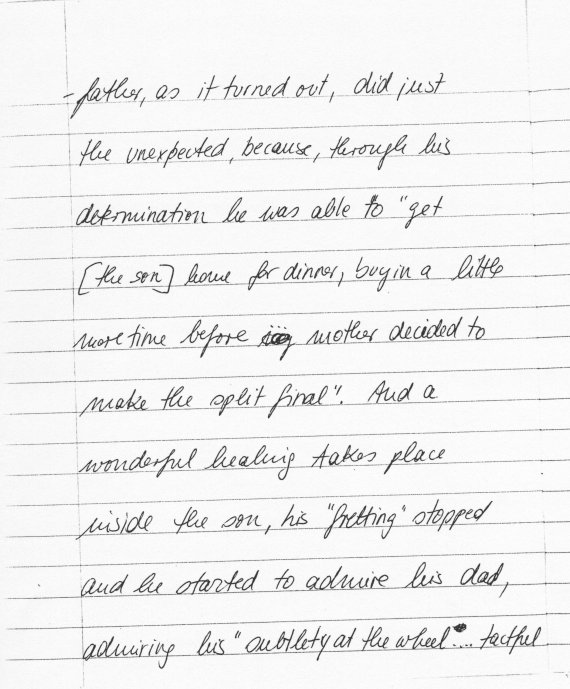 - father, as it turned out, did just
the unexpected, because, through his
determination he was able to "get
[the son] home for dinner, buyin a little
more time before mother decided to
make the split final". And a
wonderful healing takes place
inside the son, his "fretting" stopped
and he started to admire his dad,
admiring his "subtlety at the wheel".... tactful